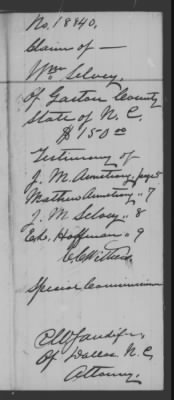 No. 18840.
Claim of —
Wm Selvey.
Of Gaston County
State of N. C.
$150.00
Testimony of
J. M. Armstrong, page 5
Mathew Armstrong " 7
J. M. Selvey " 8
Ed. Hoffman " 9
Special Commissioner
Of Dallas N. C.
Attorney.